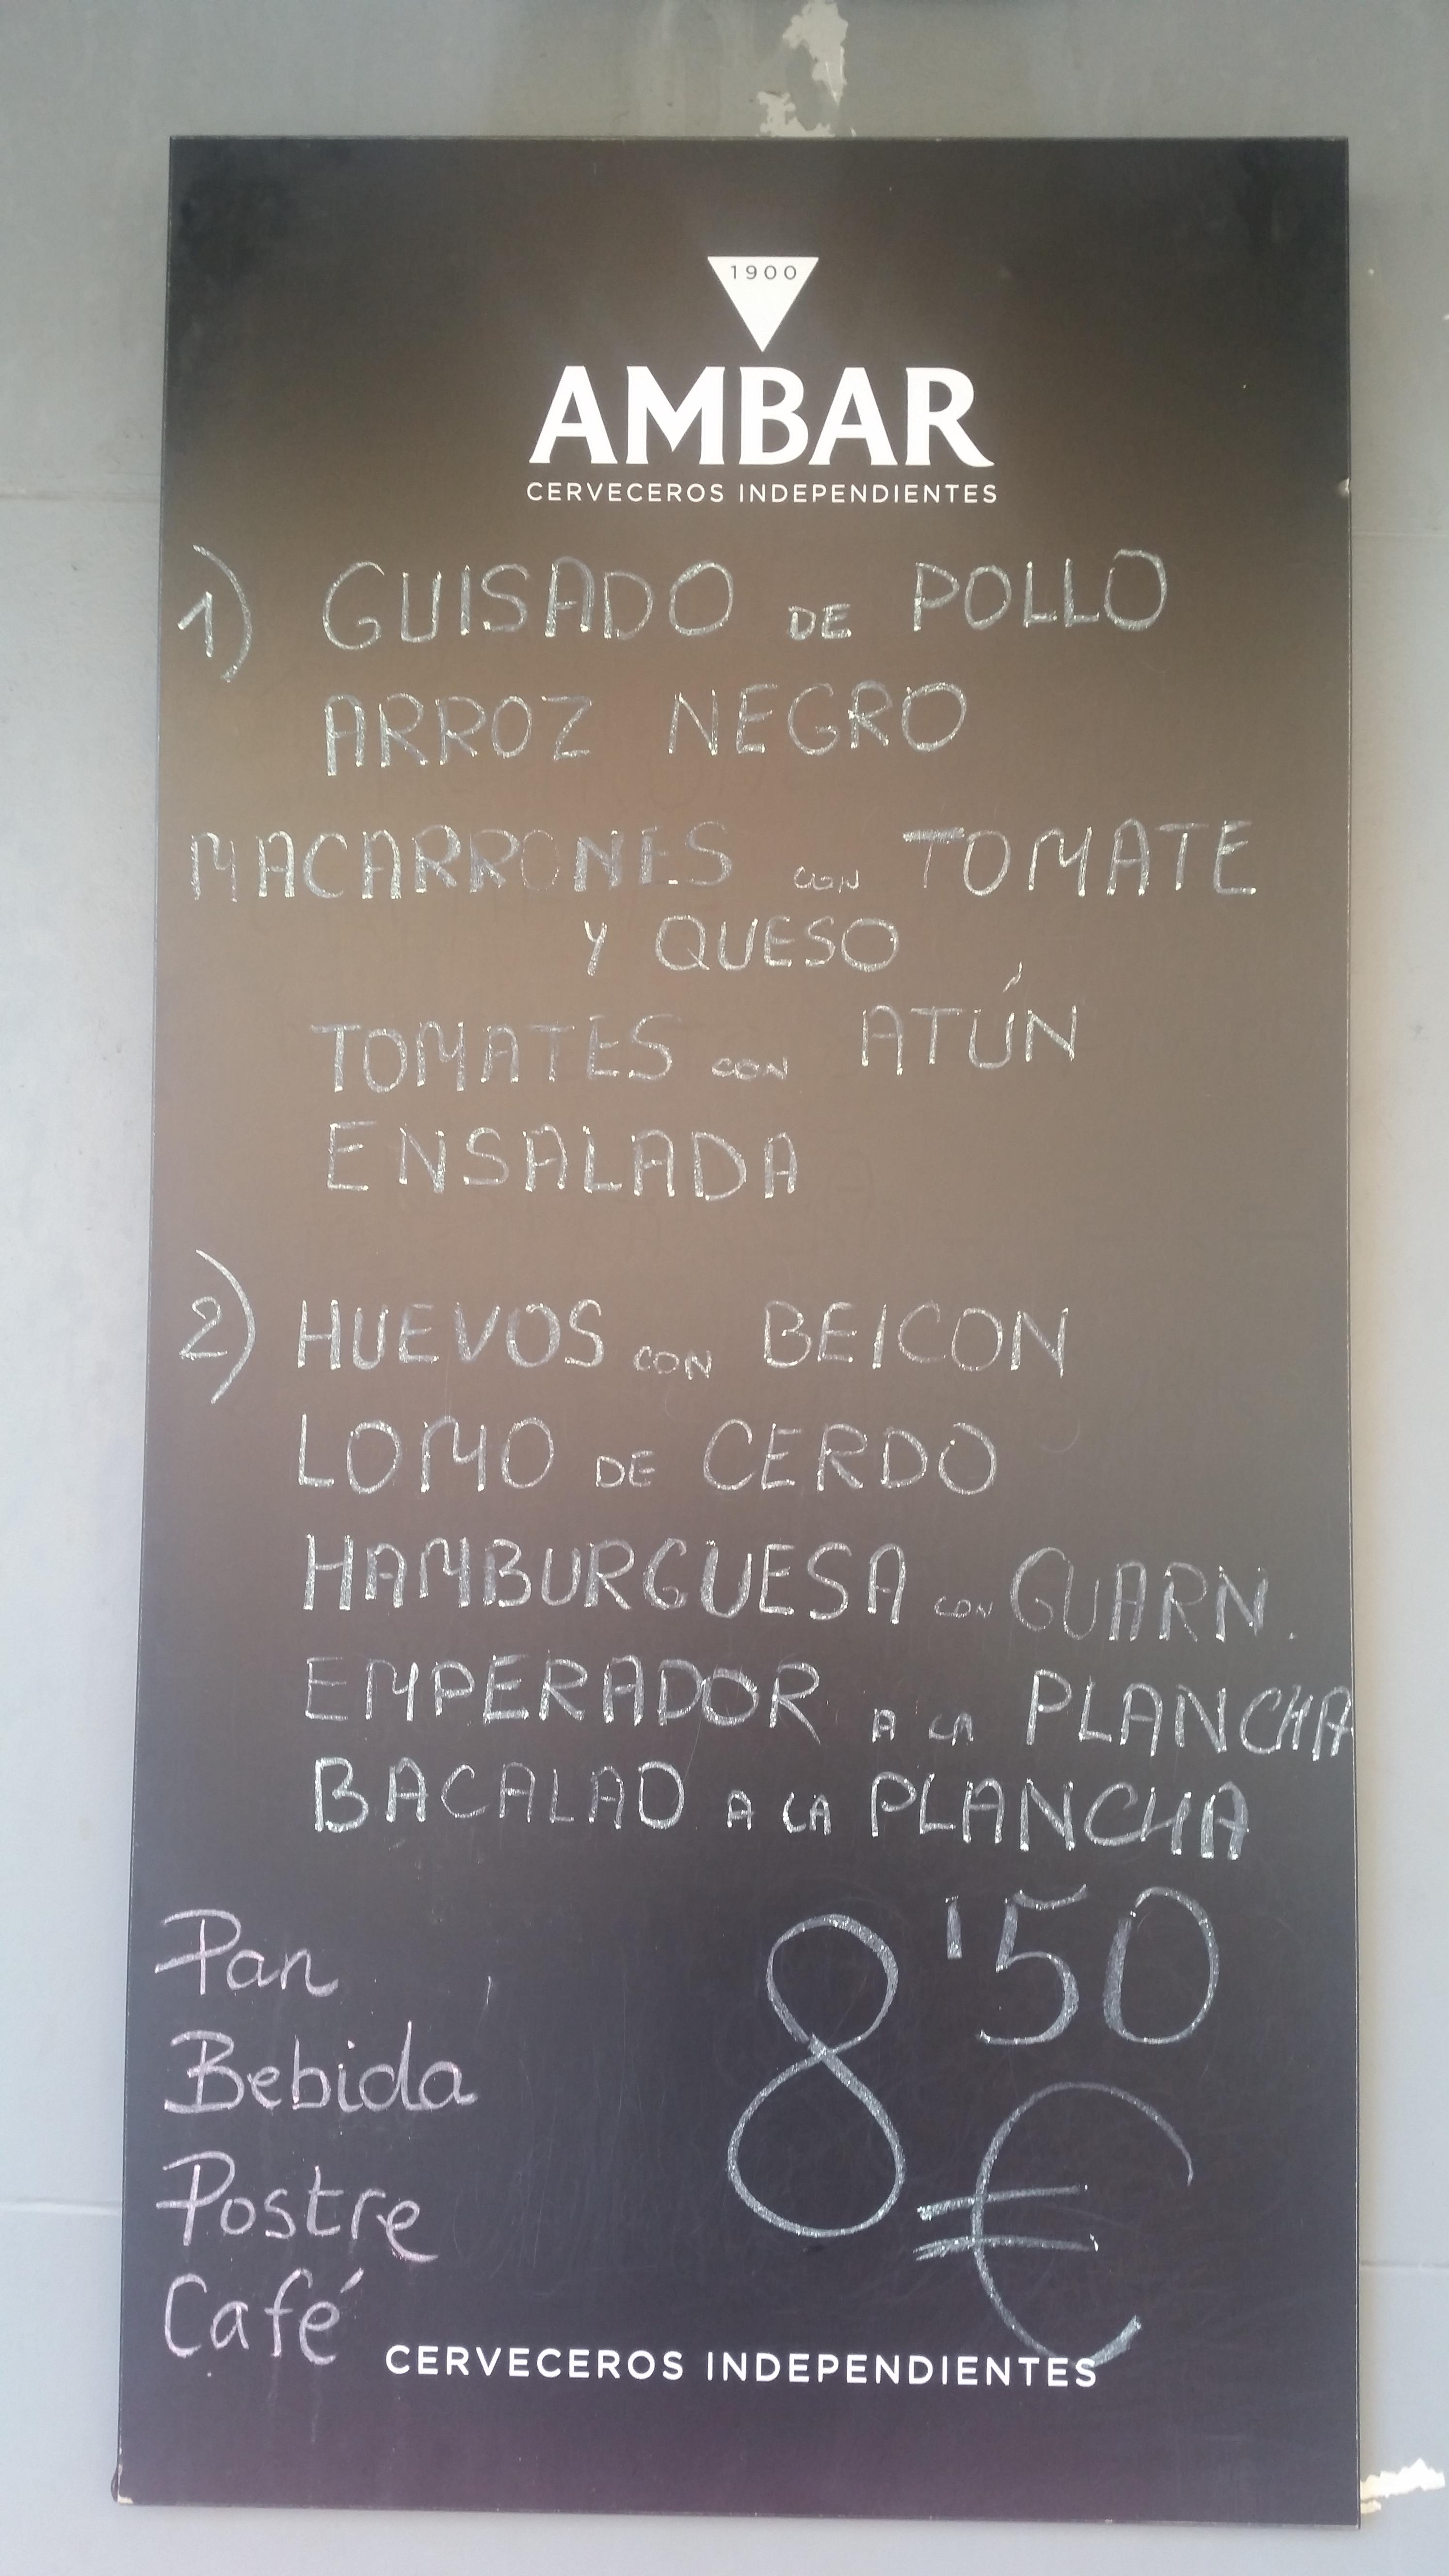 1900
AMBAR
CERVECEROS INDEPENDIENTES
1) GUISADO DE POLLO
ARROZ NEGRO
MACARRONES CON TOMATE
Y QUESO
TOMATES CON ATÚN
ENSALADA
2) HUEVOS CON BEICON
LOMO DE CERDO
HAMBURGUESA CON GUARN.
EMPERADOR A LA PLANCHA
BACALAO A LA PLANCHA
Pan
Bebida
Postre
Café
8'50
€
CERVECEROS INDEPENDIENTES